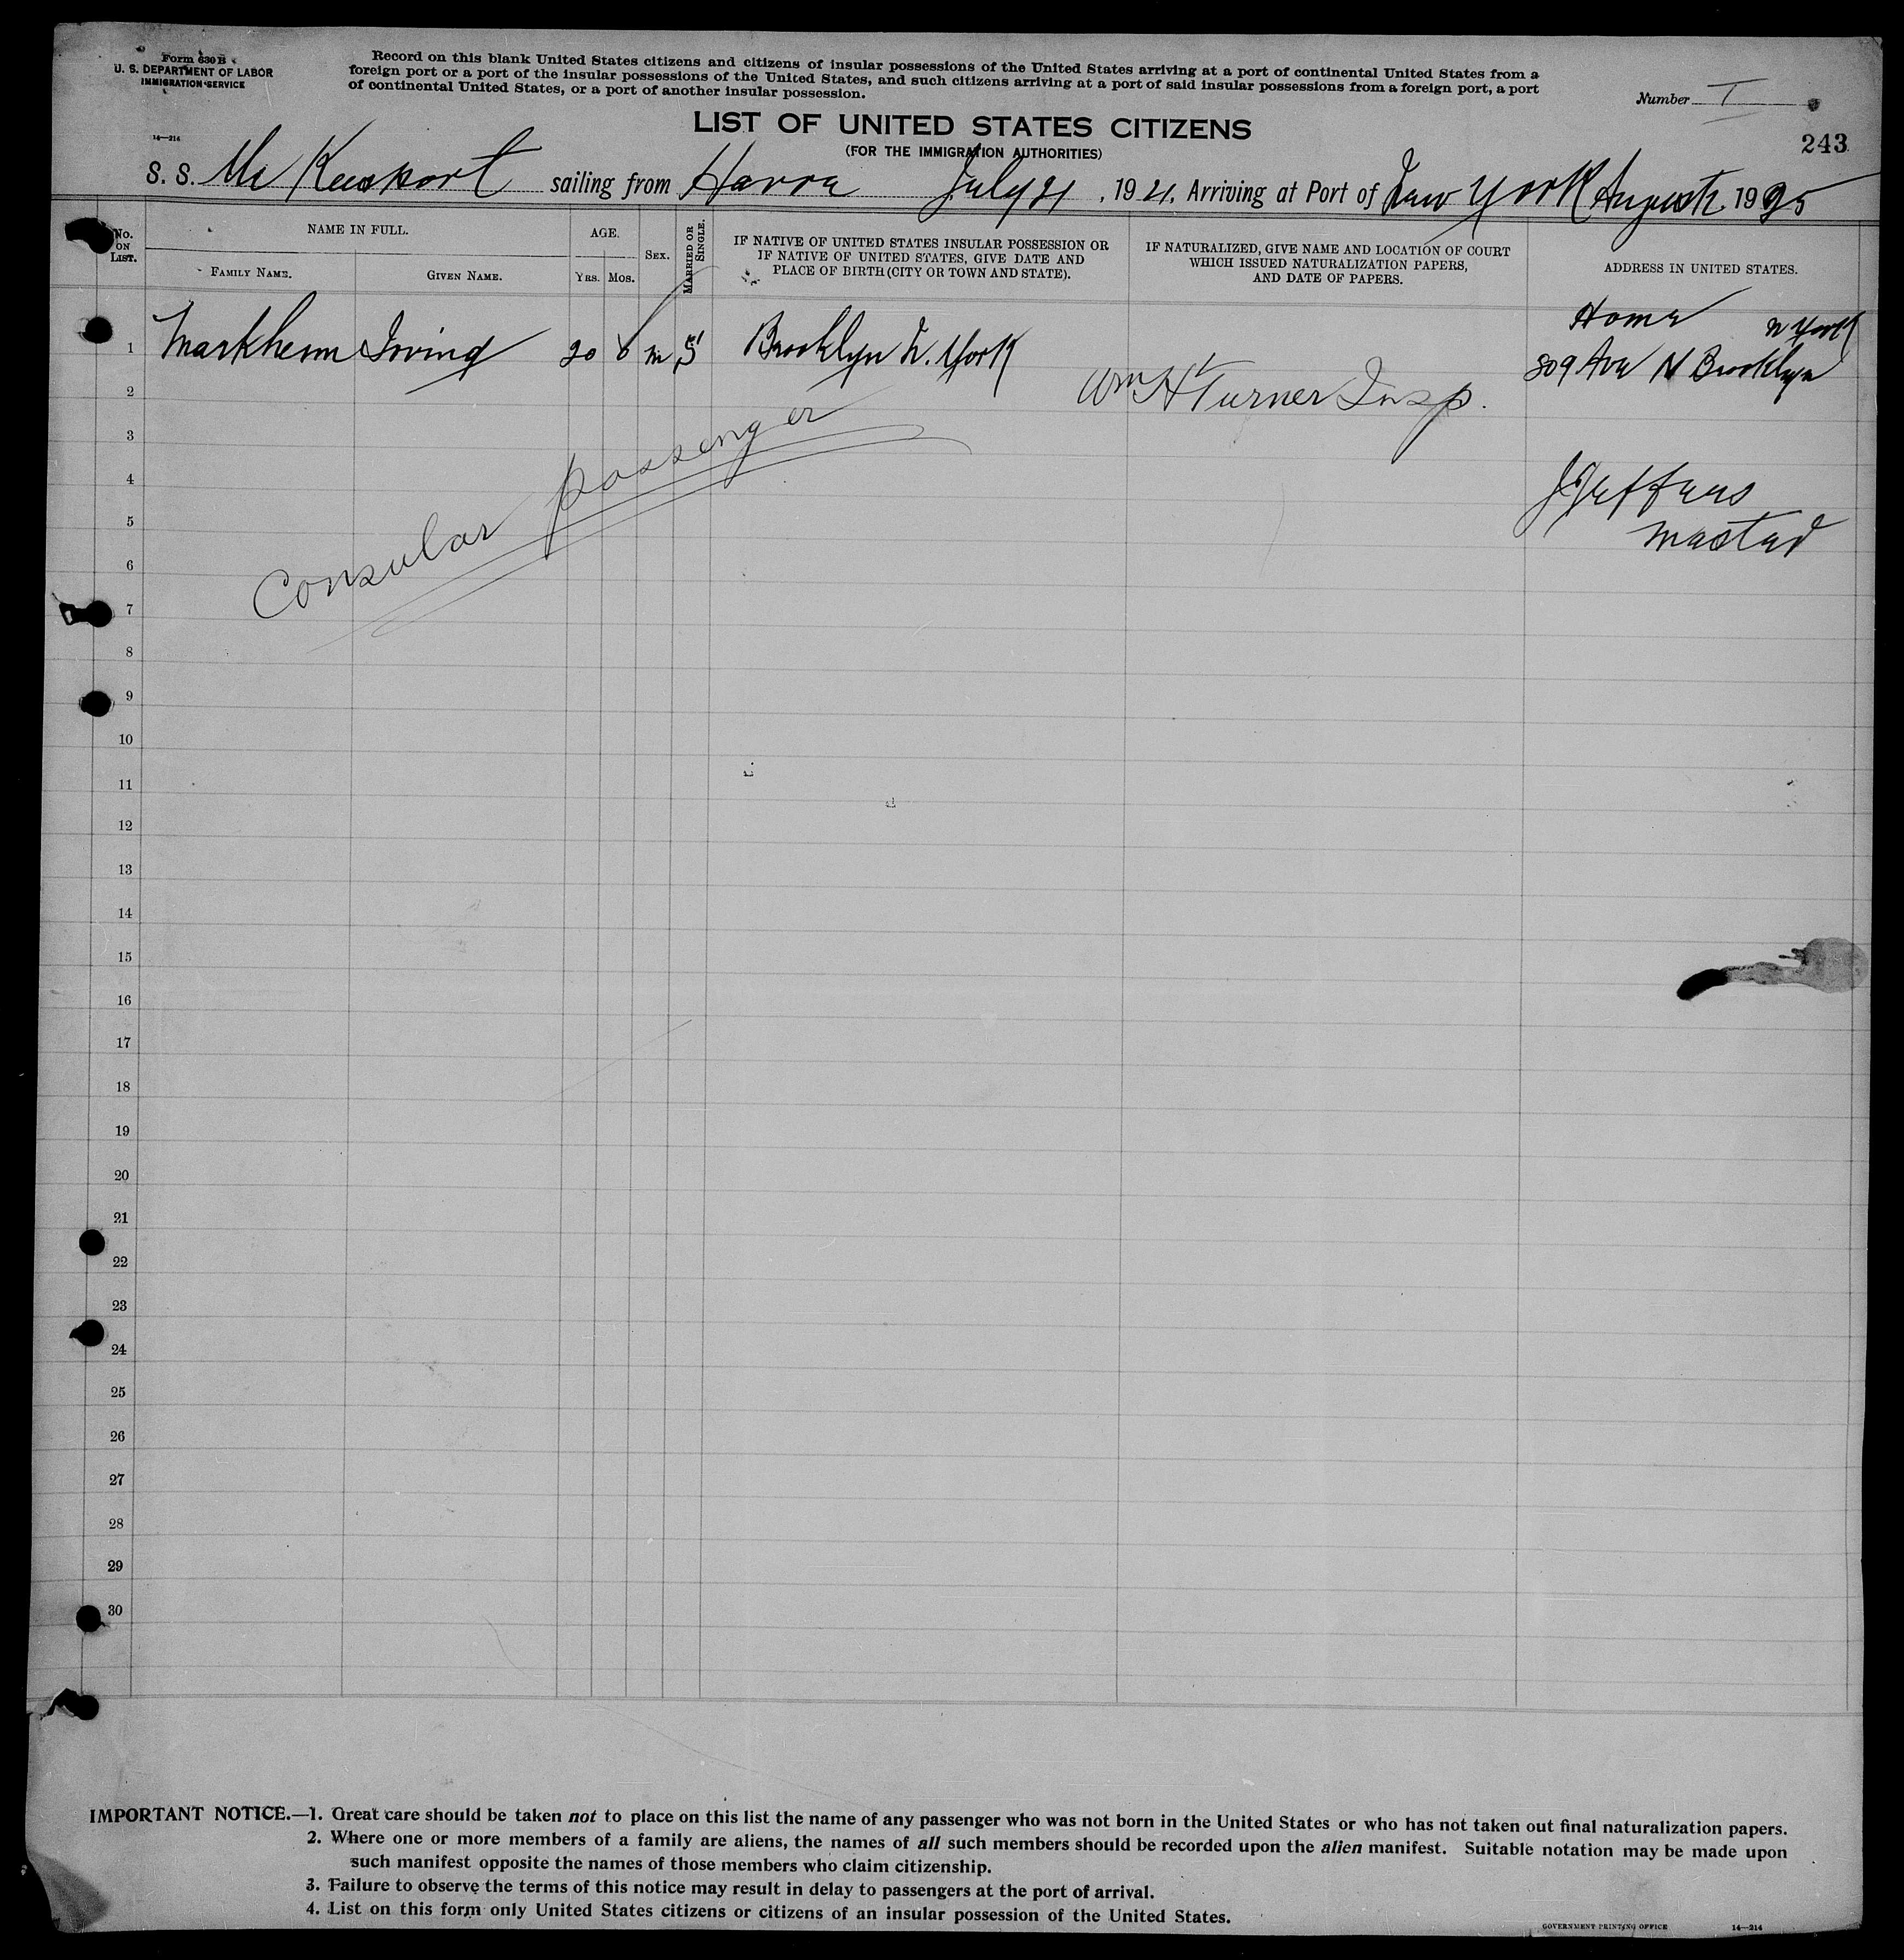 Form 630 B
U. S. DEPARTMENT OF LABOR
IMMIGRATION SERVICE
14—214
Record on this blank United States citizens and citizens of insular possessions of the United States arriving at a port of continental United States from a
foreign port or a port of the insular possessions of the United States, and such citizens arriving at a port of said insular possessions from a foreign port, a port
of continental United States, or a port of another insular possession.
Number I
LIST OF UNITED STATES CITIZENS
(FOR THE IMMIGRATION AUTHORITIES)
243
S. S. Mc Keesport sailing from Havre July 21, 1921, Arriving at Port of New York August 19
No. ON LIST.
NAME IN FULL.
FAMILY NAME.
GIVEN NAME.
AGE.
YRS. MOS.
SEX.
MARRIED OR SINGLE.
IF NATIVE OF UNITED STATES INSULAR POSSESSION OR
IF NATIVE OF UNITED STATES, GIVE DATE AND
PLACE OF BIRTH (CITY OR TOWN AND STATE).
IF NATURALIZED, GIVE NAME AND LOCATION OF COURT
WHICH ISSUED NATURALIZATION PAPERS,
AND DATE OF PAPERS.
ADDRESS IN UNITED STATES.
Home
1 Markheim Irving 20 6 m S Brooklyn N. York 809 Ave N Brooklyn N York
2 Wm H Turner Insp.
3
Consular passenger
4
J Jeffers
5
6
7
8
9
10
11
12
13
14
15
16
17
18
19
20
21
22
23
24
25
26
27
28
29
30
IMPORTANT NOTICE.—1. Great care should be taken not to place on this list the name of any passenger who was not born in the United States or who has not taken out final naturalization papers.
2. Where one or more members of a family are aliens, the names of all such members should be recorded upon the alien manifest. Suitable notation may be made upon
such manifest opposite the names of those members who claim citizenship.
3. Failure to observe the terms of this notice may result in delay to passengers at the port of arrival.
4. List on this form only United States citizens or citizens of an insular possession of the United States.
GOVERNMENT PRINTING OFFICE 14—214